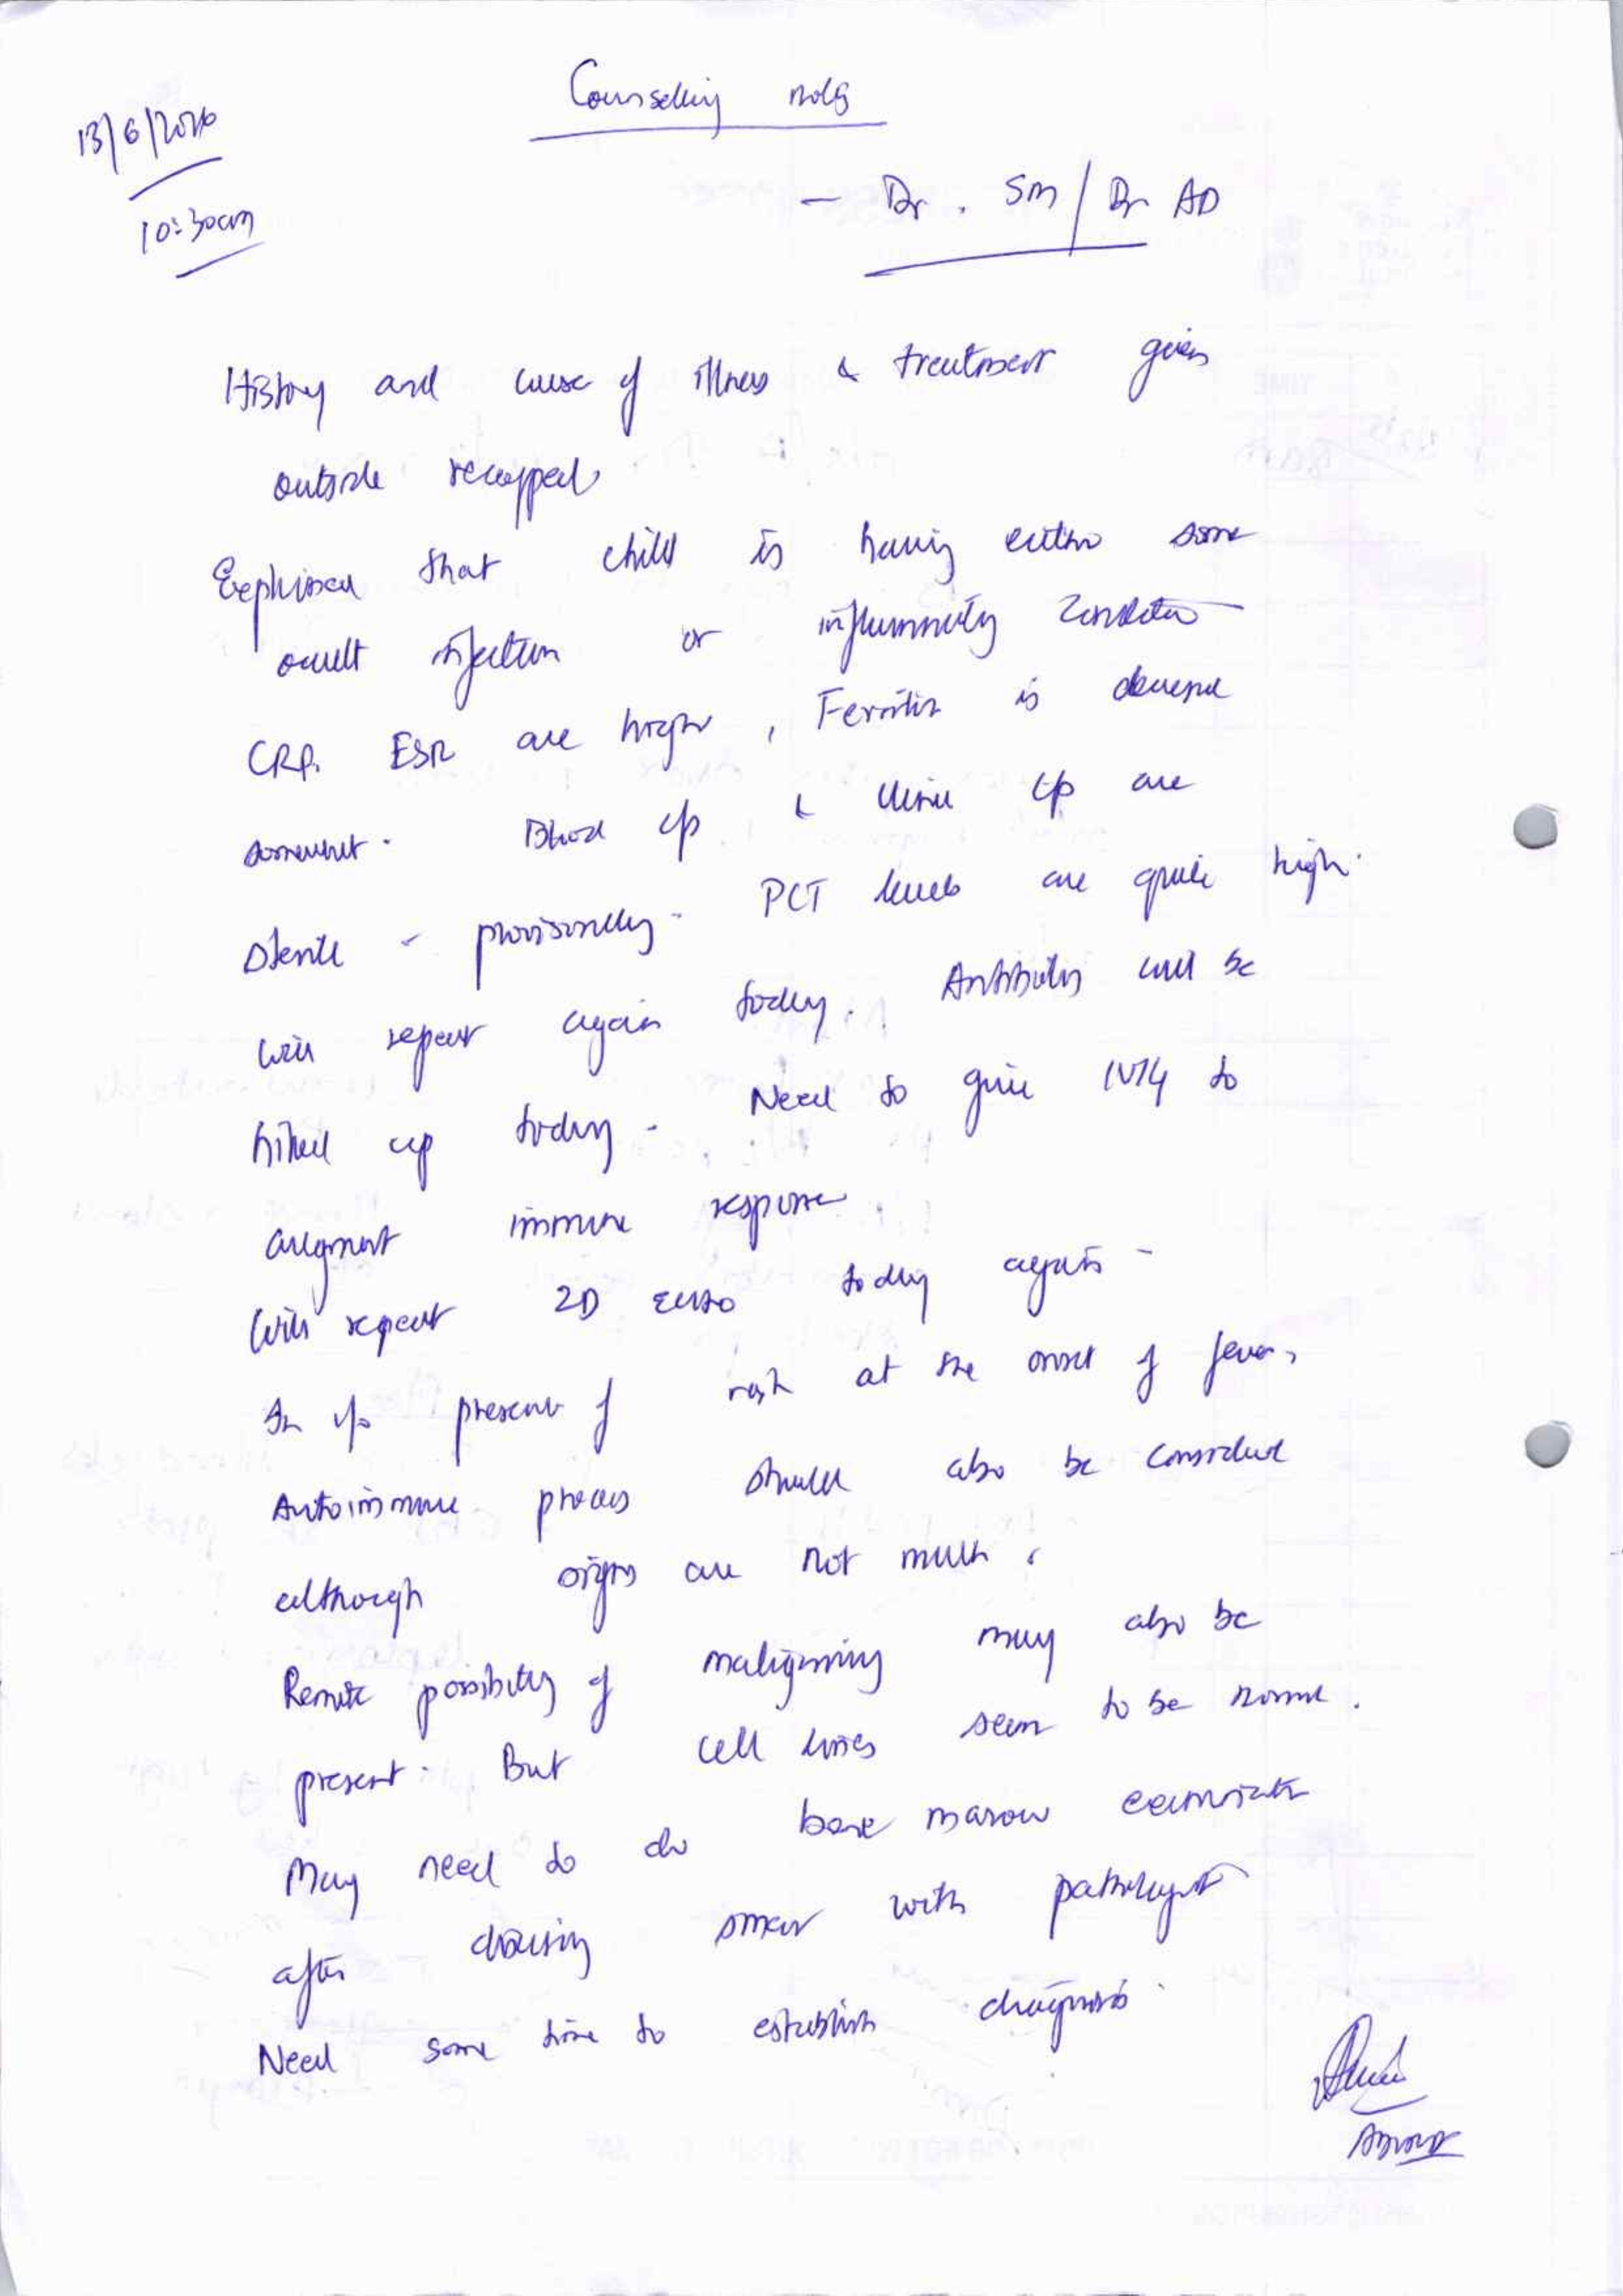 Counselling notes
13/6/2016
10:30am
- Dr. SM / Dr AD
History and cause of illness & treatment given
outside recapped
Explained that child is having either some
occult infection or inflammatory condition
CRP. ESR are high, Ferritin is
somewhat. Blood c/s & Urine c/s are
sterile - provisionally. PCT levels are quite high.
Will repeat again today. Antibiotics will be
hiked up today. Need to give IVIg to
augment immune response
Will repeat 2D echo today again -
In v/o presence of rash at the onset of fever,
Autoimmune process should also be considered
although signs are not much.
Remote possibility of malignancy may also be
present. But cell lines seem to be normal.
May need to do bone marrow
after smear with pathologist
Need some time to establish diagnosis.